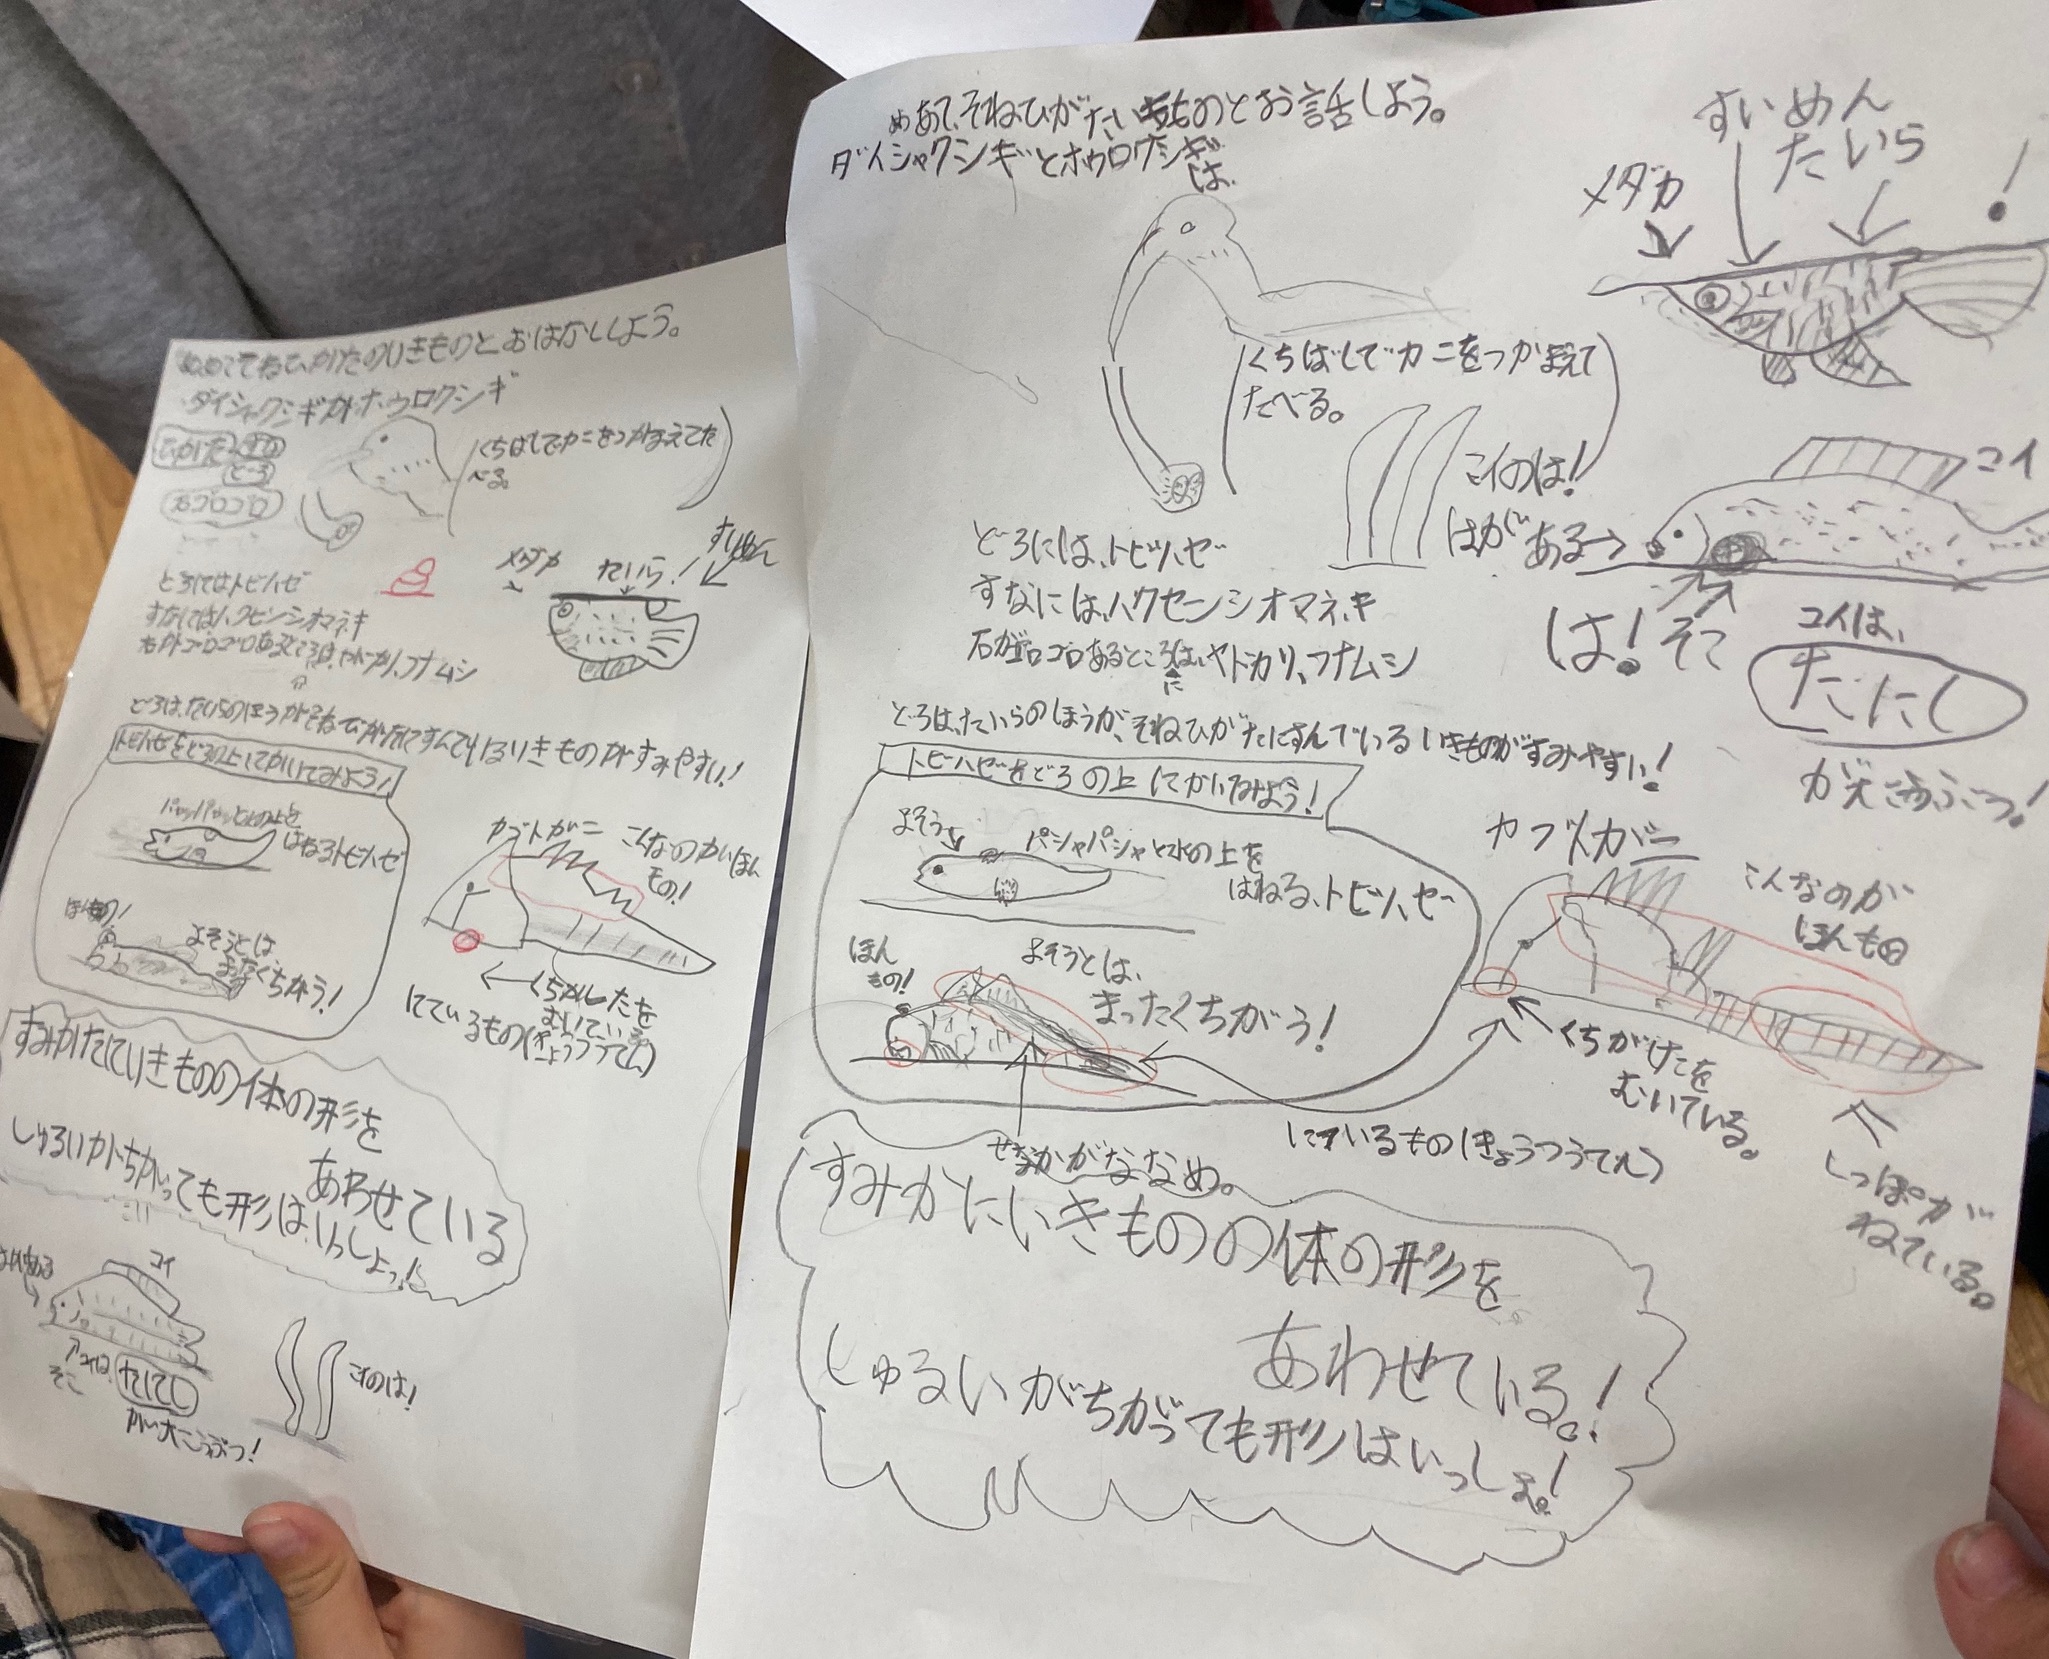 めあて、そねひがたいきものとお話しよう。
ダイシャクシギとホウロクシギ
は、
くちばしでカニをつかまえて
たべる。
コイのは!
どろには、トビハゼ
すなには、ハクセンシオマネキ
石がゴロゴロあるところは、ヤドカリ、フナムシ
に
どろは、たいらのほうが、そねひがたにすんでいるいきものがすみやすい!
トビハゼをどろの上にかいてみよう!
よそう
パシャパシャと水の上を
はねる、トビハゼ
ほん
もの!
よそうとは、
まったくちがう!
せなかがななめ。
にているもの(きょうつうてん)
すみかにいきものの体の形を
あわせている!
しゅるいがちがっても形はいっしょ!
すいめん
たいら
!
メダカ
コイ
はがある→
は!そこ
コイは、
たにし
が大こうぶつ!
カブトガニ
こんなのが
ほんもの
くちがしたを
むいている。
しっぽが
ねている。
ひがたのいきものとおはなししよう。
ダイシャクシギがホウロクシギ
くちばしでカニをつかまえてた
べる。
ひがた
すな
どろ
石ゴロゴロ
どろにはトビハゼ
すなにはハクセンシオマネキ
メダカ
たいら!
すいめん
どろは、たいらのほうがそねひがたにすんでいるいきものがすみやすい!
トビハゼをどろの上にかいてみよう!
はねるトビハゼ
ほんもの!
よそうとは、
まったくちがう!
カブトガニ
こんなのがほん
もの!
くちがしたを
むいている。
にているもの(きょうつうてん)
すみかたにいきものの体の形を
あわせている
しゅるいがちがっても形は、いっしょっ!
コイ
そこ
たにし
が大こうぶつ!